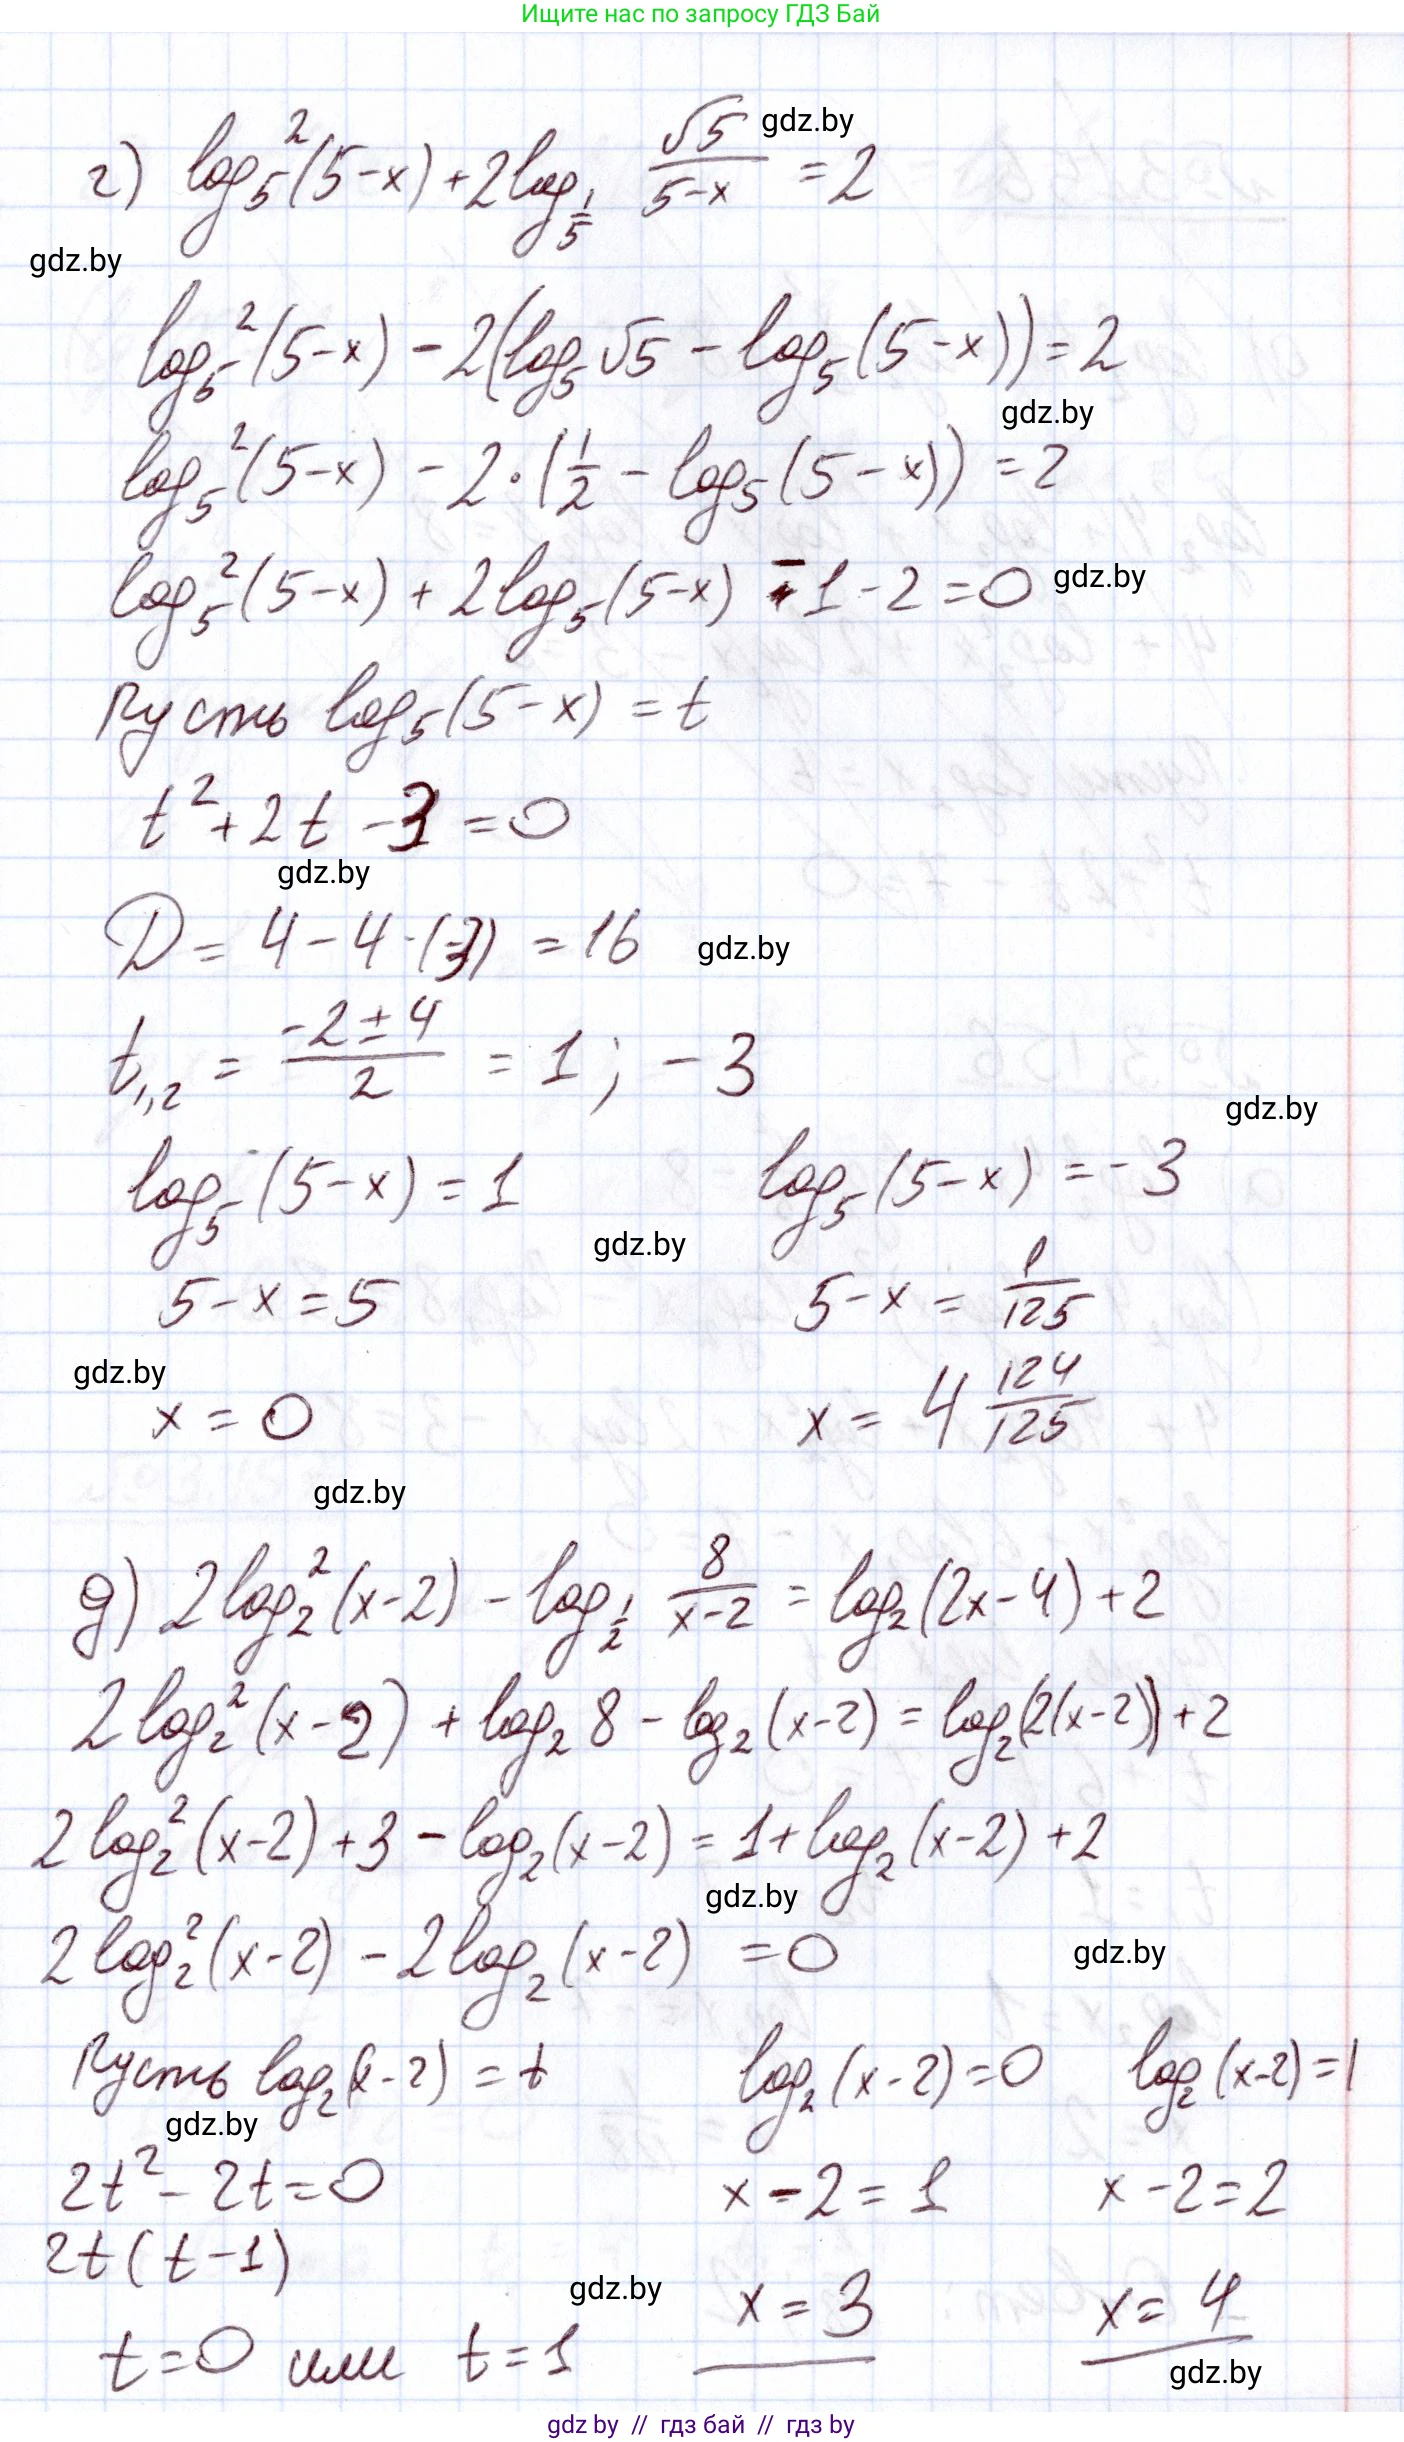 Ищите нас по запросу ГДЗ Бай
г) log₅²(5-x) + 2log_{1/5} √5/(5-x) = 2
gdz.by
gdz.by
log₅²(5-x) - 2(log₅√5 - log₅(5-x)) = 2
gdz.by
log₅²(5-x) - 2·(1/2 - log₅(5-x)) = 2
log₅²(5-x) + 2log₅(5-x) - 1 - 2 = 0
gdz.by
Пусть log₅(5-x) = t
t² + 2t - 3 = 0
gdz.by
D = 4 - 4·(-3) = 16
gdz.by
t₁,₂ = (-2±4)/2 = 1; -3
gdz.by
log₅(5-x) = 1 log₅(5-x) = -3
gdz.by
5-x = 5 5-x = 1/125
gdz.by
x = 0 x = 4 124/125
gdz.by
д) 2log₂²(x-2) - log_{1/2} 8/(x-2) = log₂(2x-4) + 2
2log₂²(x-2) + log₂8 - log₂(x-2) = log₂(2(x-2)) + 2
2log₂²(x-2) + 3 - log₂(x-2) = 1 + log₂(x-2) + 2
gdz.by
2log₂²(x-2) - 2log₂(x-2) = 0
gdz.by
Пусть log₂(x-2) = t log₂(x-2) = 0 log₂(x-2) = 1
gdz.by
2t² - 2t = 0 x - 2 = 1 x - 2 = 2
2t(t-1)
gdz.by
x = 3 x = 4
t = 0 или t = 1
gdz.by
gdz by // гдз бай // gdz by